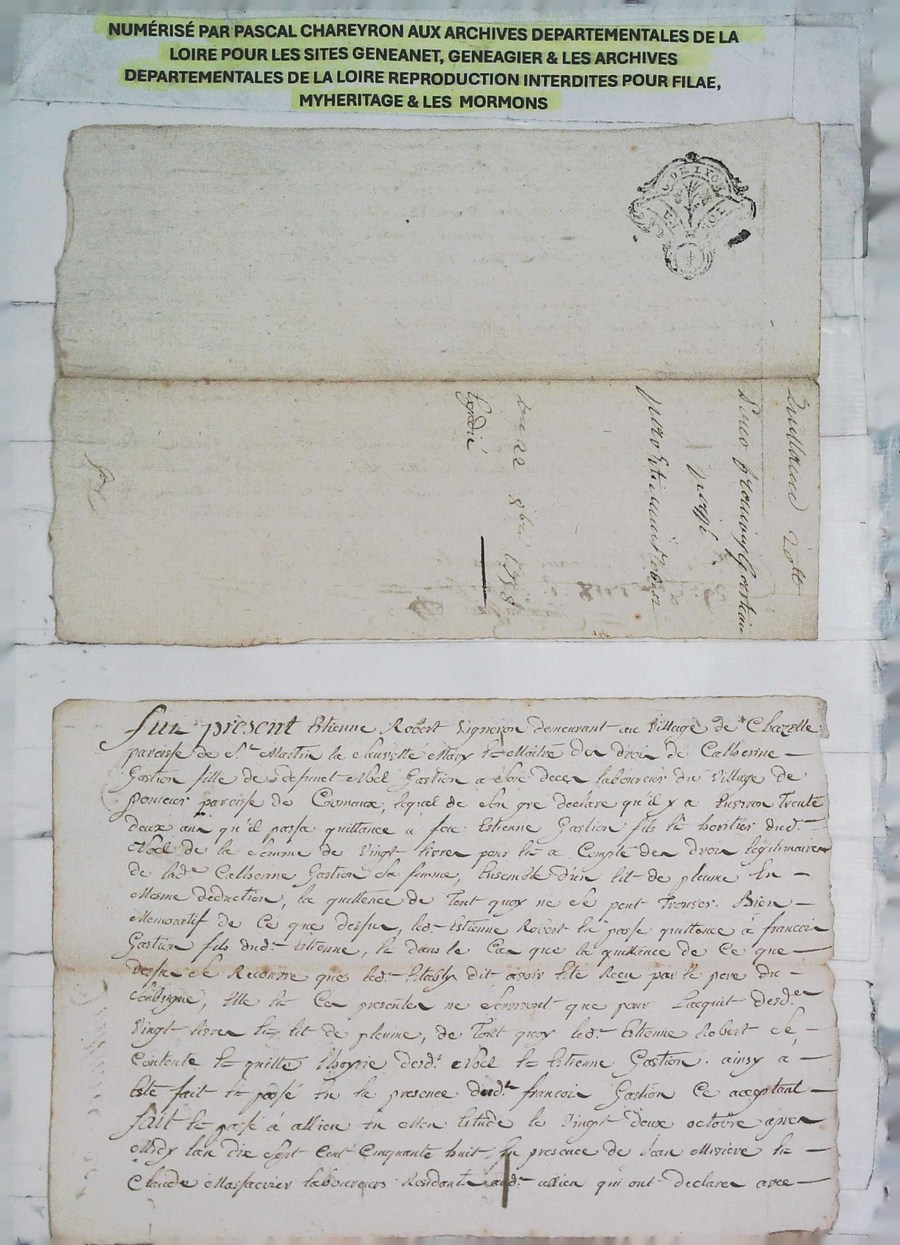 NUMÉRISÉ PAR PASCAL CHAREYRON AUX ARCHIVES DEPARTEMENTALES DE LA
LOIRE POUR LES SITES GENEANET, GENEAGIER & LES ARCHIVES
DEPARTEMENTALES DE LA LOIRE REPRODUCTION INTERDITES POUR FILAE,
MYHERITAGE & LES MORMONS
DE LYON
Quittance 20tt
Pour françois Gastion
Du 22 8bre 1758
Expédié
Fut présent Estienne Robert Vigneron demeurant au Village de Chazelle
paroisse de St Martin la Sauvetté Mary & Maitre des droits de Catherine
Gastion fille de defunct Noel Gastion a son deces laboureur du Village de
paroisse de lequel de son gre declare qu'il y a Environ Trente
deux ans qu'il passa quittance a feu Estienne Gastion fils & heritier dud.
Noel de la somme de Vingt livres pour & a Compte des droits legitimaires
de lade Catherine Gastion Sa femme, Ensemble d'un lit de plume En
Mesme deduction, la quittance de Tout quoy ne se peut Trouver. Bien
Memoratif de ce que dessus, led. Estienne Robert En passe quittance à francois
Gastion fils dud. Estienne, & dans le Cas que la quittance de Ce que
dessus se Recouvre que led. dit avoir Eté Recu par le pere du
, Elle & Ces presentes ne serviront que pour Lacquit desd.
Vingt livres & lit de plume, de Tout quoy led. Estienne Robert se
Contente & quitte L'hoyrie desd. Noel & Estienne Gastion. ainsy a
Esté fait & passé En la presence dud. francois Gastion Ce acceptant
fait & passé à allieu En Mon Etude le Vingt deux octobre apres
Midy l'an Mil Sept Cent Cinquante huit, En presence de Jean Misiere &
Claude laboureurs Residants aud. allieu qui ont declaré avec